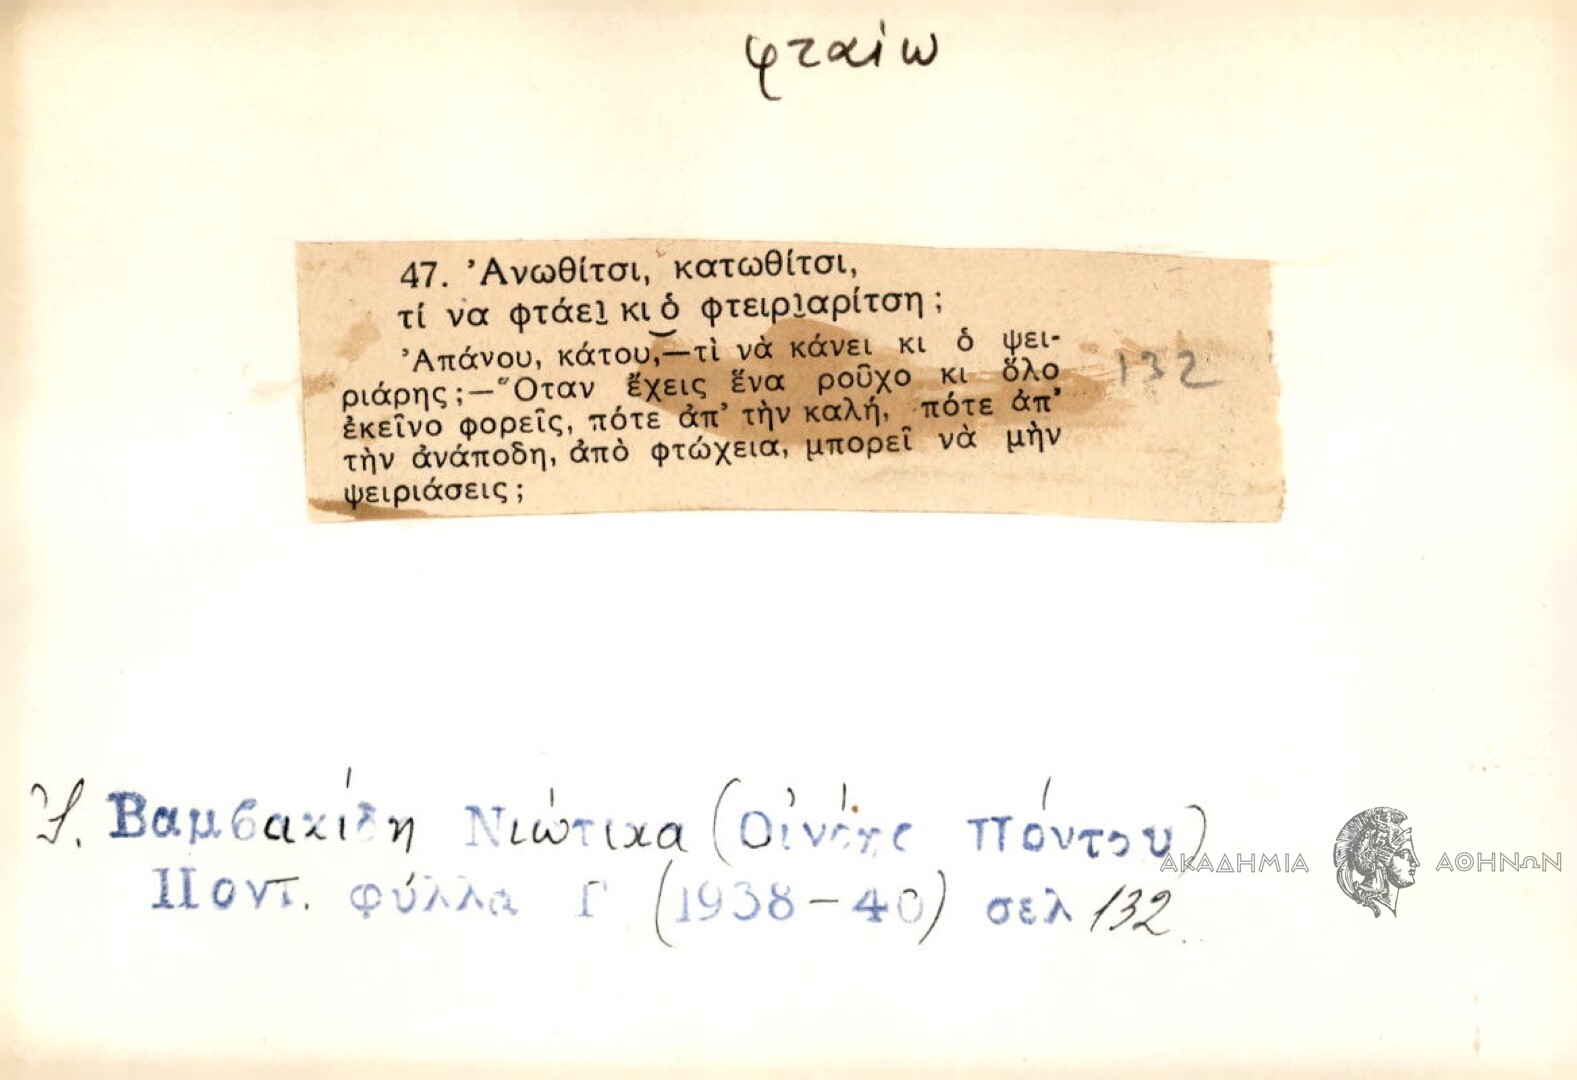 φταίω
47. Ἀνωθίτσι, κατωθίτσι,
τί να φτάει̯ κι ὁ φτειρι̯αρίτση;
Ἀπάνου, κάτου,—τὶ νὰ κάνει κι ὁ ψει-
ριάρης;—Ὅταν ἔχεις ἕνα ροῦχο κι ὅλο
ἐκεῖνο φορεῖς, πότε ἀπ’ τὴν καλή, πότε ἀπ’
τὴν ἀνάποδη, ἀπὸ φτώχεια, μπορεῖ νὰ μὴν
ψειριάσεις;
132
Βαμβακίδη Νιώτικα (Οἰνόης Πόντου)
Ποντ. φύλλα Γ (1938-40) σελ 132
ΑΚΑΔΗΜΙΑ ΑΘΗΝΩΝ